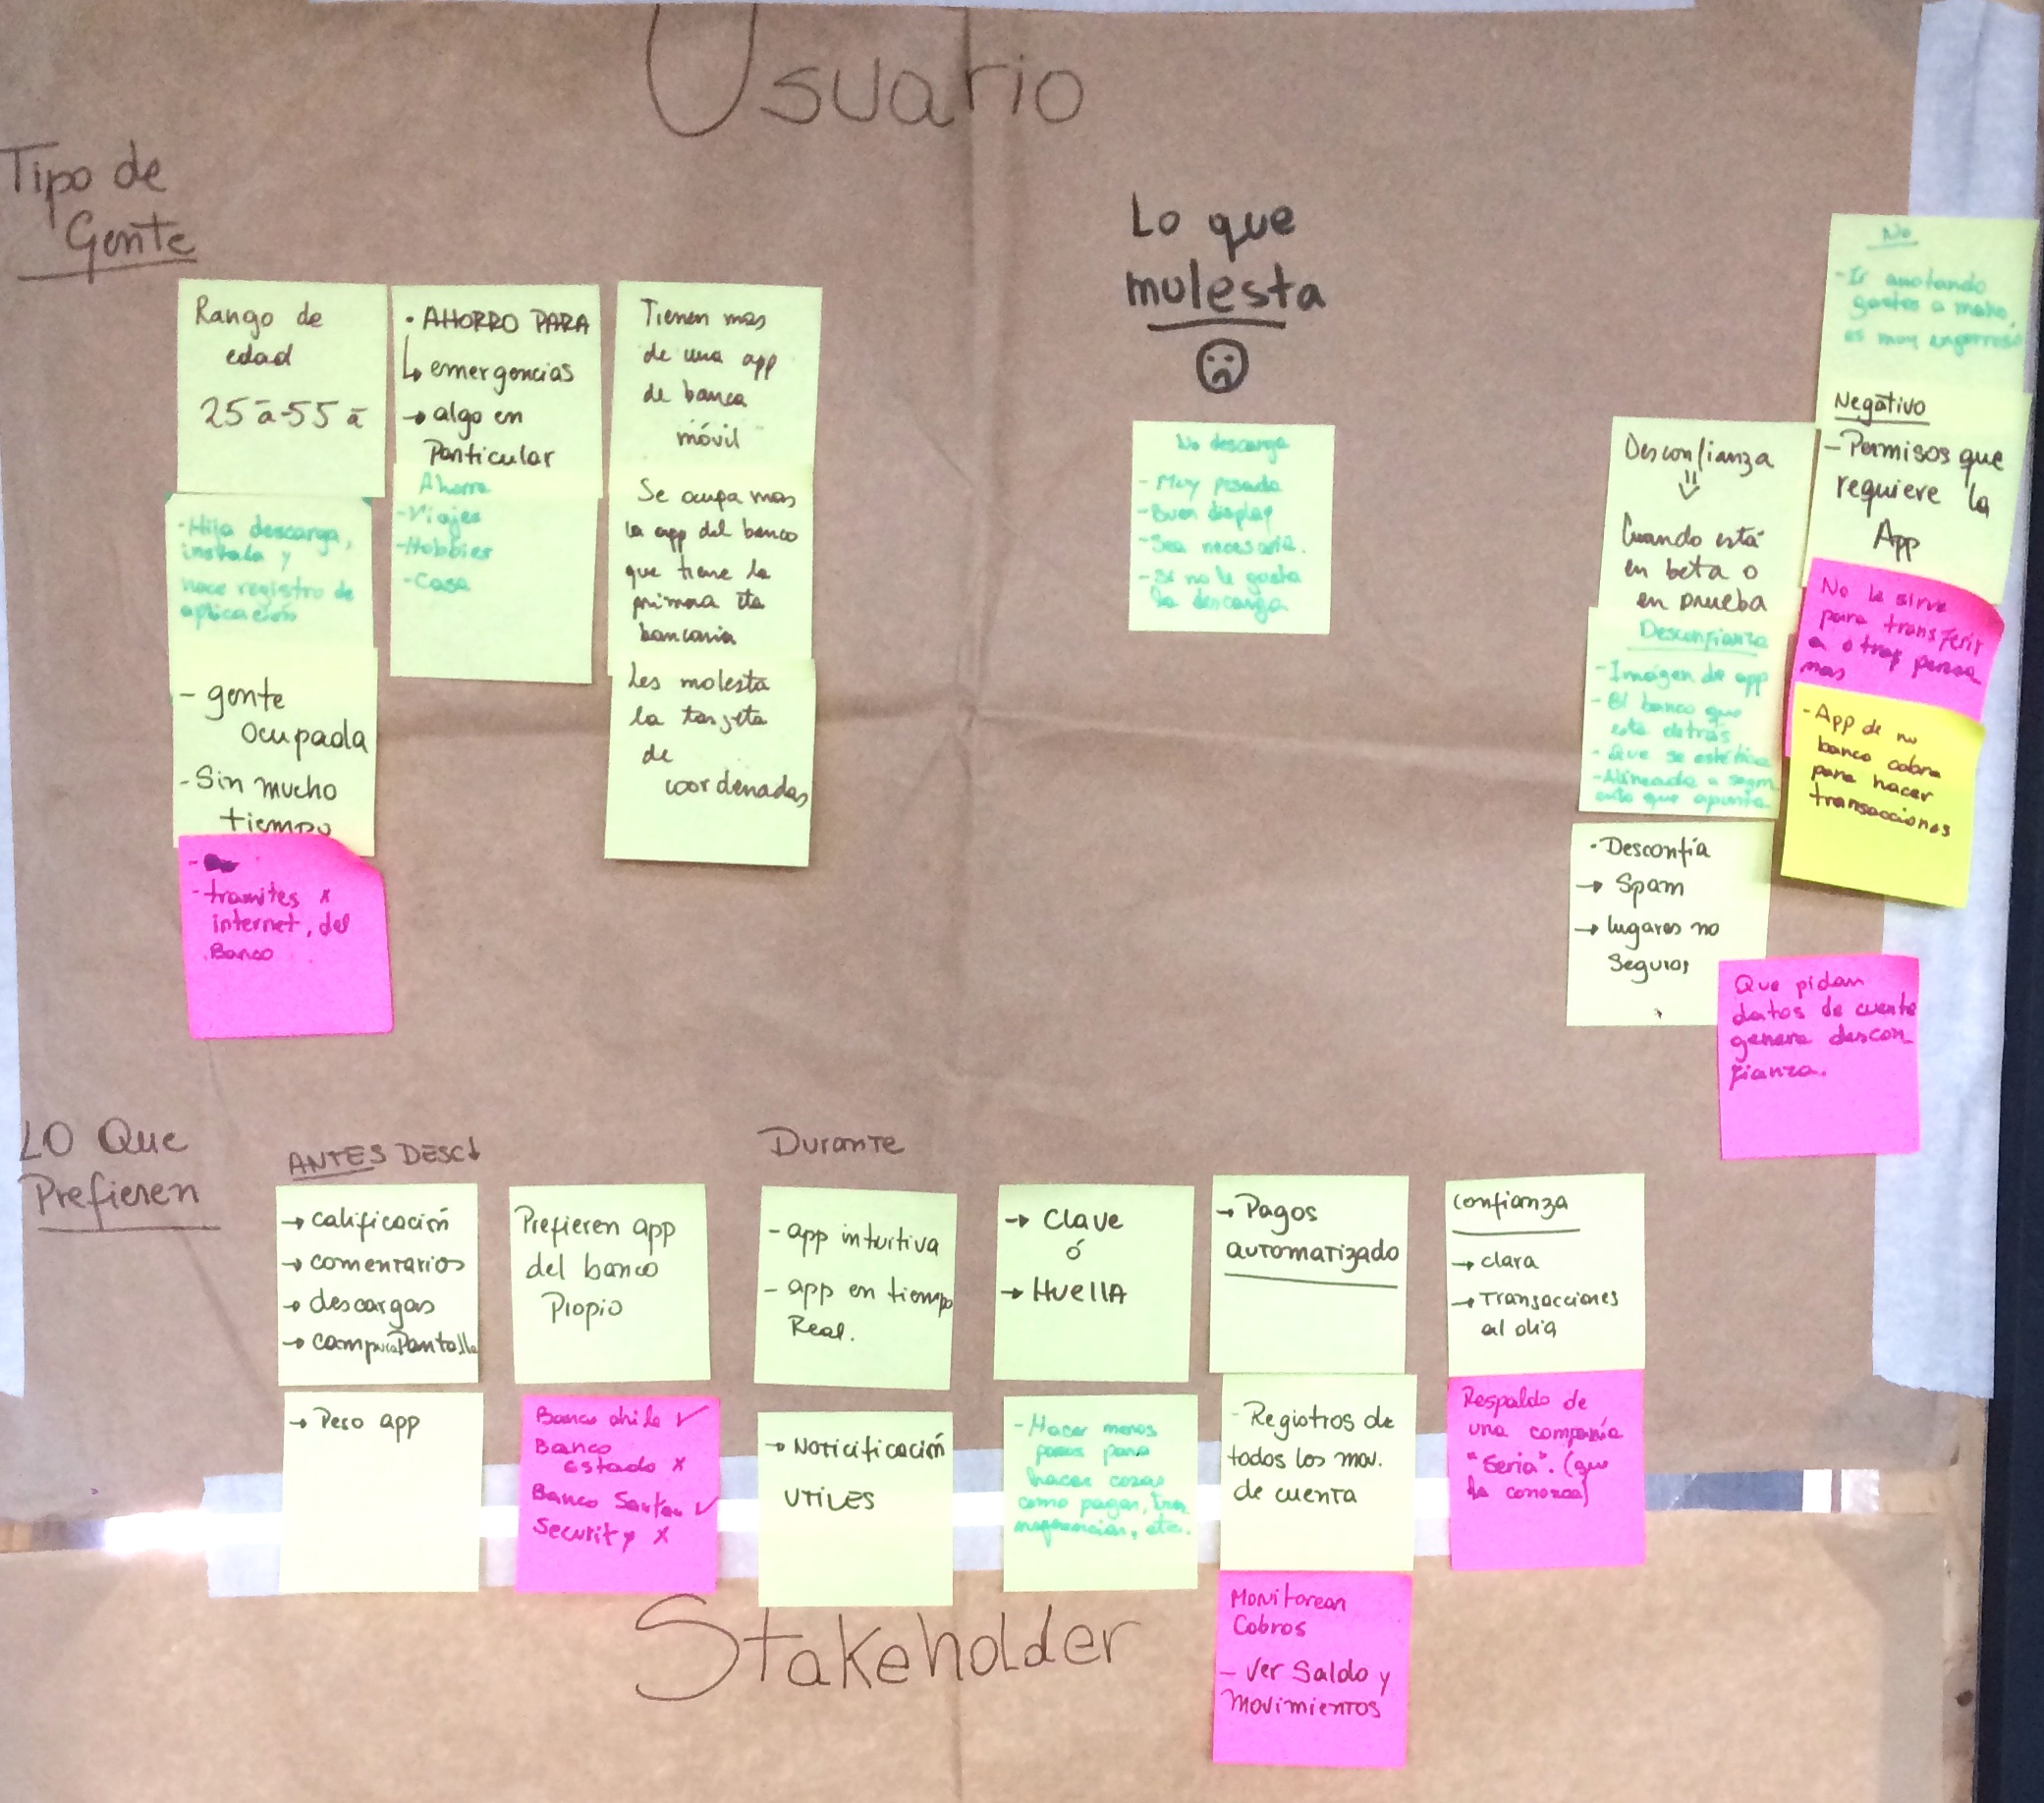 Usuario
Tipo de
Gente
Rango de
edad
25 a-55 a
-Hija descarga,
instala y
hace registro de
aplicación
- gente
ocupada
-Sin mucho
tiempo
-tramites x
internet, del
Banco
• AHORRO PARA
↳ emergencias
→ algo en
Particular
Ahorro
-Viajes
-Hobbies
-Casa
Tienen mas
de una app
de banca
móvil
Se ocupa mas
la app del banco
que tiene la
primera cta
bancaria
Les molesta
la tarjeta
de
coordenadas
Lo que
mulesta
No descarga
- Muy pesada
- Buen display
- Sea necesaria.
- Si no le gusta
la descarga
Desconfianza
⇓
Cuando está
en beta o
en prueba
Desconfianza
-Imágen de app
- El banco que
esta detrás
- Que se estética
-Alineada a segm
ento que apunta
• Desconfía
→ Spam
→ lugares no
seguros
No
-Ir anotando
gastos a mano,
es muy engorroso
Negativo
-Permisos que
requiere la
App
No le sirve
para transferir
a otras personas
mas
-App de no
banco cobra
para hacer
transacciones
Que pidan
datos de cuenta
genera descon
fianza.
LO Que
Prefieren
ANTES DESC↓
→ calificación
→ comentarios
→ descargas
→
→ Peso app
Prefieren app
del banco
Propio
Banco chile ✓
Banco
estado x
Banco Santan ✓
Security x
Durante
- app intuitiva
- app en tiempo
Real.
→ Noticificación
UTILES
→ Clave
ó
→ Huella
-Hacer menos
pasos para
hacer cosas
como pagar, tran
nsferencias, etc.
→ Pagos
automatizado
- Registros de
todos los mov.
de cuenta
Monitorean
Cobros
- Ver Saldo y
Movimientos
confianza
→ clara
→ Transacciones
al dia
Respaldo de
una compañía
"Seria". (que
la conozca)
Stakeholder